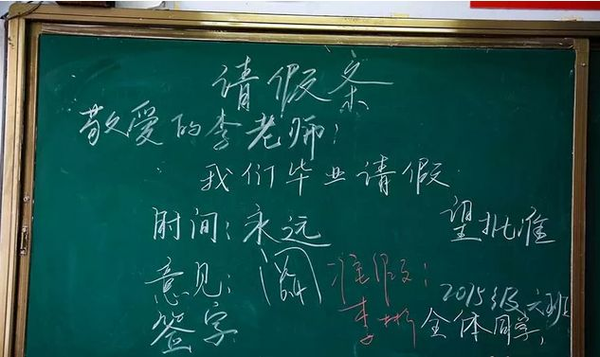 请假条
敬爱的李老师：
我们毕业请假
时间：永远
望批准
意见：阅 准假：
签字 李彬
2015级六班
全体同学